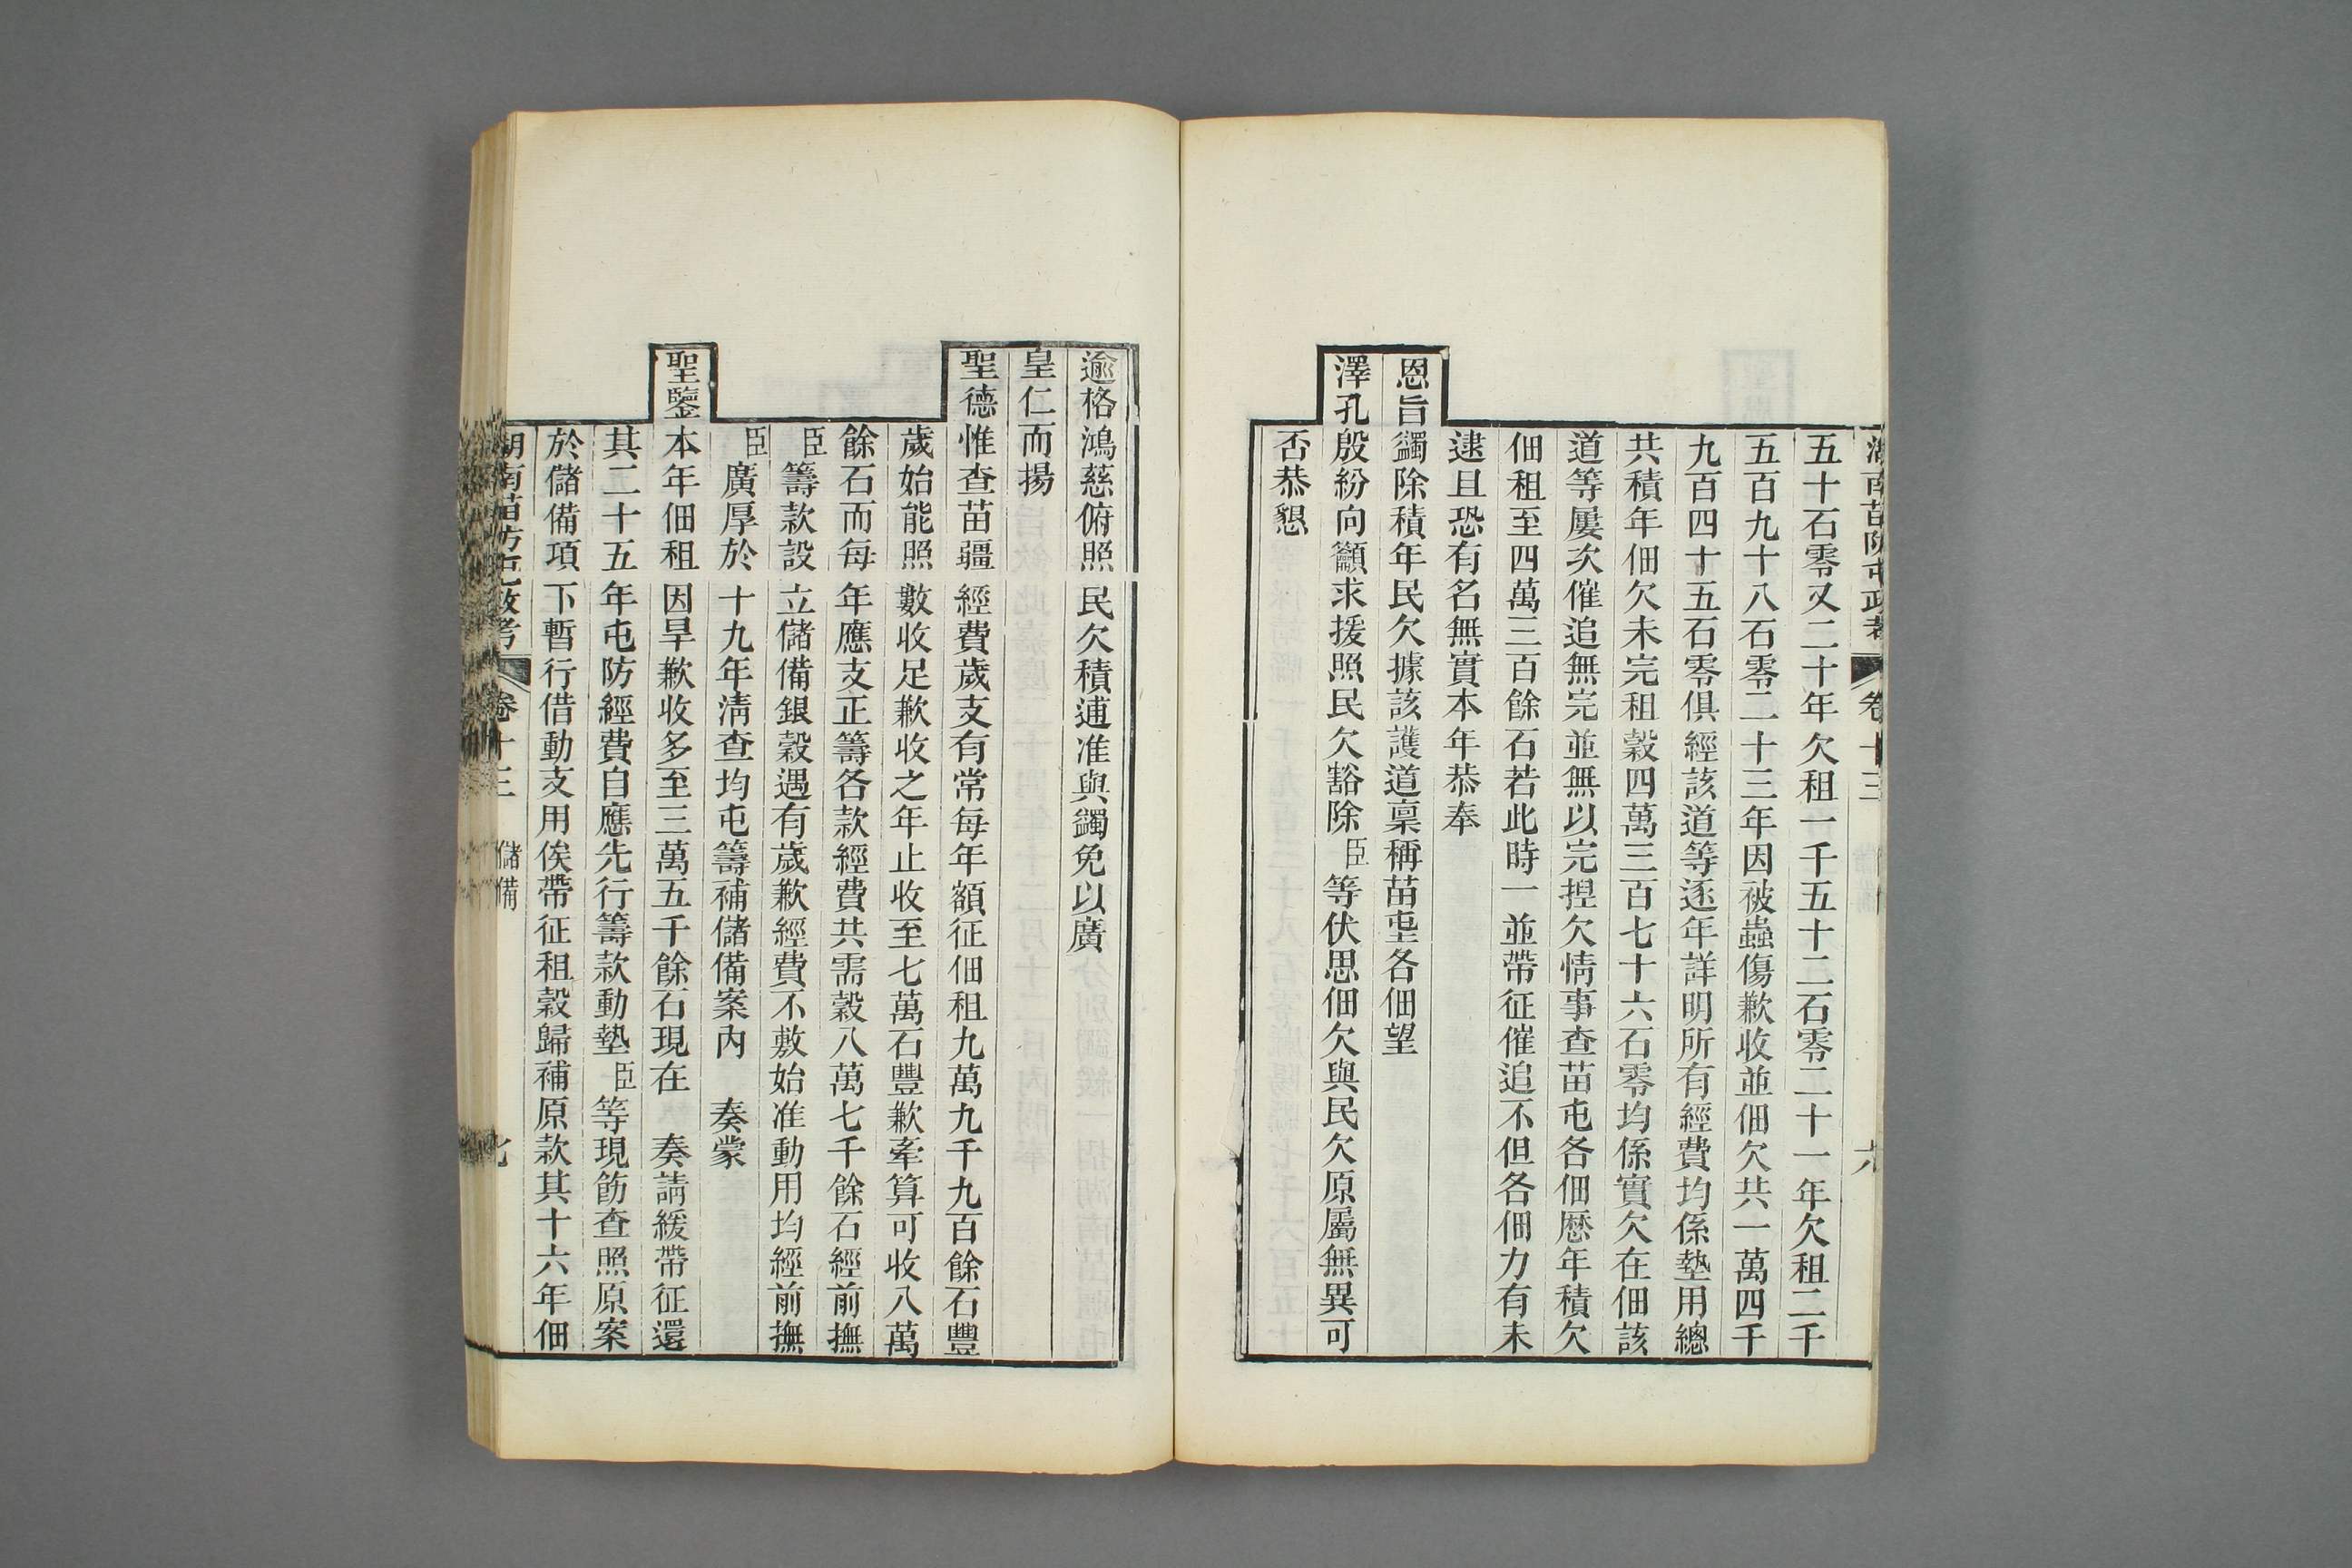 湖南苗防屯政考 卷十三 六
五十石零又二十年欠租一千五十二石零二十一年欠租二千
五百九十八石零二十三年因被蟲傷歉收並佃欠共一萬四千
九百四十五石零俱經該道等逐年詳明所有經費均係墊用總
共積年佃欠未完租穀四萬三百七十六石零均係實欠在佃該
道等屢次催追無完並無以完捏欠情事查苗屯各佃歷年積欠
佃租至四萬三百餘石若此時一並帶征催追不但各佃力有未
逮且恐有名無實本年恭奉
恩旨蠲除積年民欠據該護道稟稱苗屯各佃望
澤孔殷紛向籲求援照民欠豁除臣等伏思佃欠與民欠原屬無異可
否恭懇
逾格鴻慈俯照民欠積逋准與蠲免以廣
皇仁而揚
聖德惟查苗疆經費歲支有常每年額征佃租九萬九千九百餘石豐
歲始能照數收足歉收之年止收至七萬石豐歉牽算可收八萬
餘石而每年應支正籌各款經費共需穀八萬七千餘石經前撫
臣籌款設立儲備銀穀遇有歲歉經費不敷始准動用均經前撫
臣廣厚於十九年清查均屯籌補儲備案內 奏蒙
聖鑒本年佃租因旱歉收多至三萬五千餘石現在 奏請緩帶征還
其二十五年屯防經費自應先行籌款動墊臣等現飭查照原案
於儲備項下暫行借動支用俟帶征租穀歸補原款其十六年佃
湖南苗防屯政考 卷十三 儲備 七